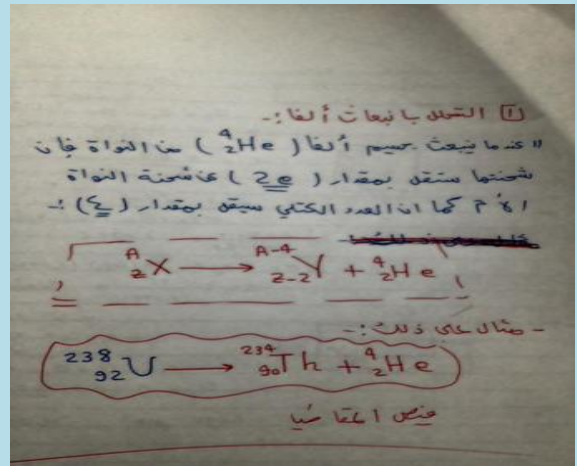 ① التحلل بانبعاث ألفا :-
" عندما ينبعث جسيم ألفا ( ⁴₂He ) من النواة فإن
شحنتها ستقل بمقدار ( 2e ) عن شحنة النواة
الأم كما ان العدد الكتلي سيقل بمقدار (٤) :-
ᴬ_ZX → ᴬ⁻⁴_Z₋₂Y + ⁴₂He
- مثال على ذلك :-
²³⁸₉₂U → ²³⁴₉₀Th + ⁴₂He